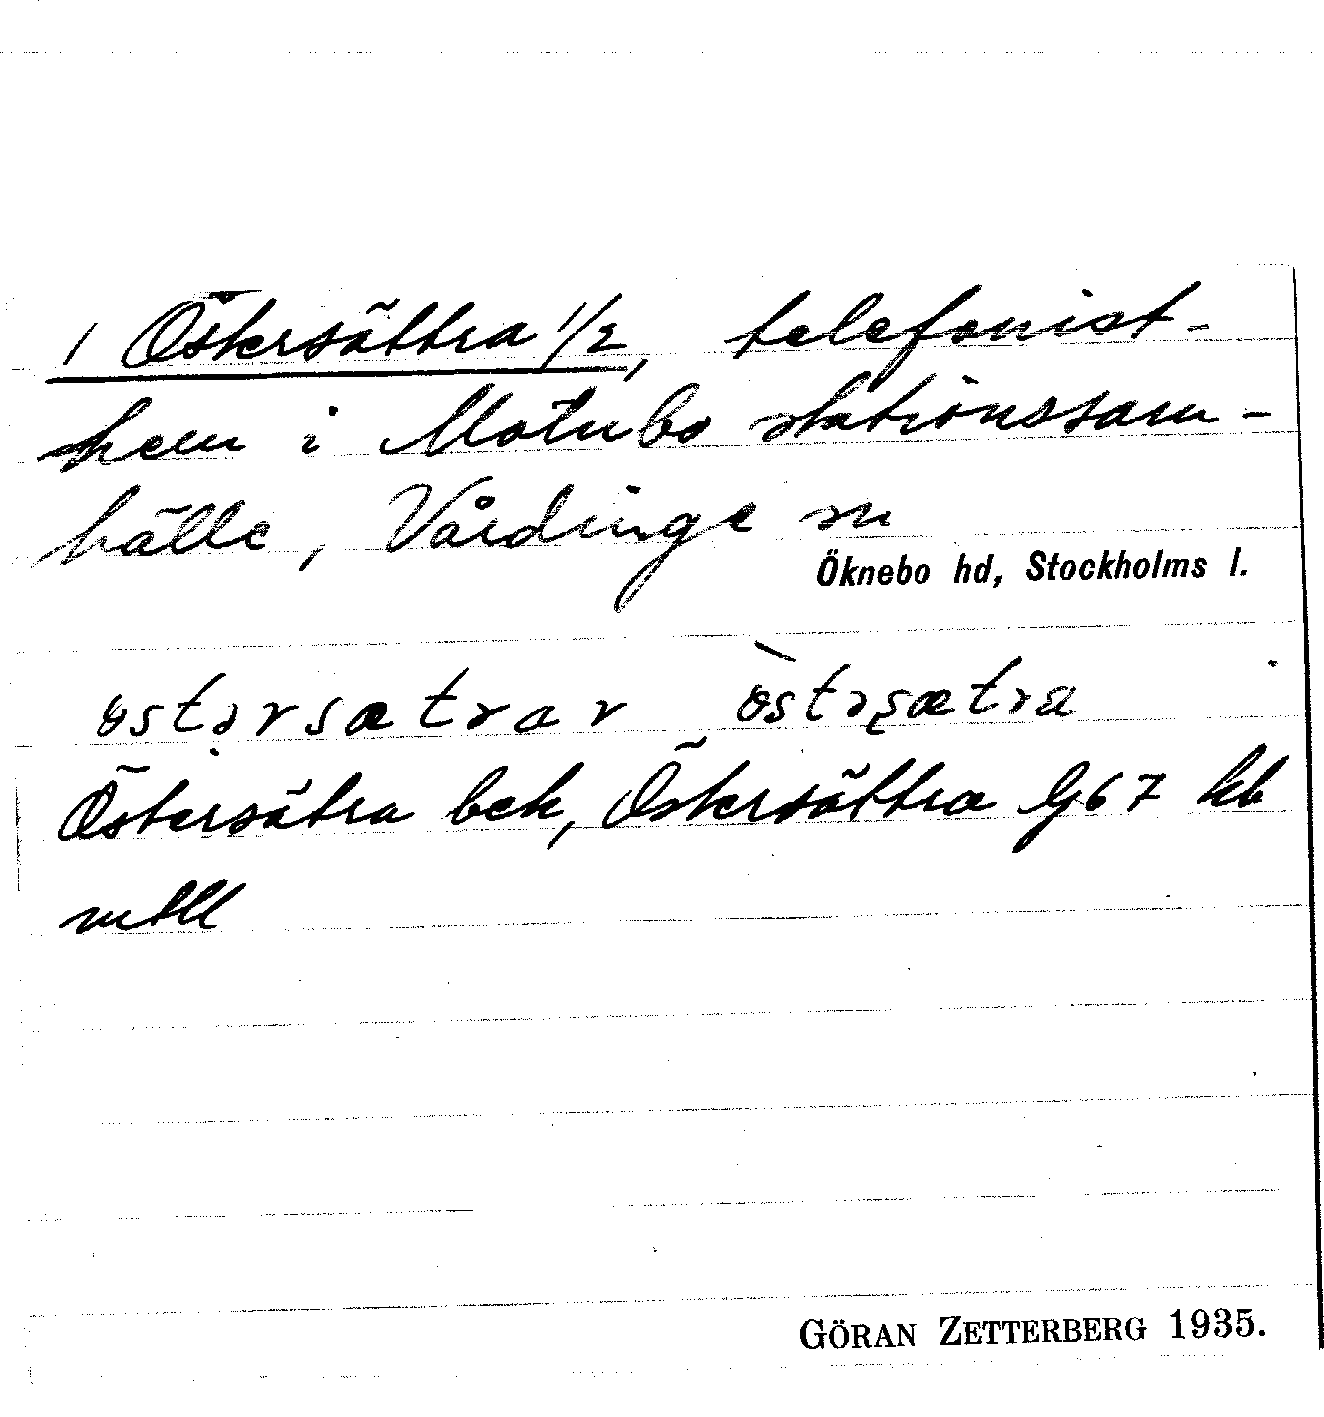 1 Östersättra 1/2, telefonist-
hem i Mölnbo stationssam-
hälle, Vårdinge sn
Öknebo hd, Stockholms l.
östərsætrar östəʂætra
Östersätra bek, Östersättra G67 kb
mtll
GÖRAN ZETTERBERG 1935.